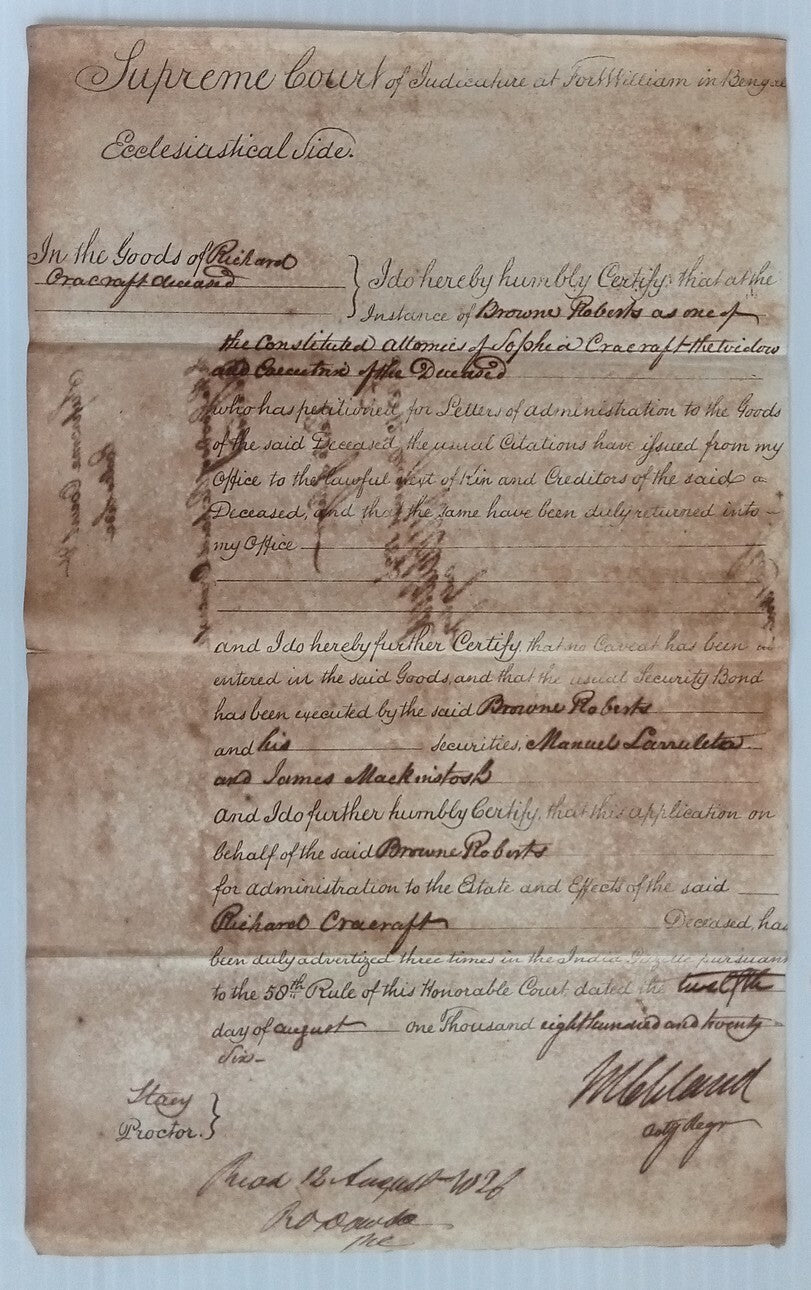 Supreme Court of Judicature at Fort William in Bengal
Ecclesiastical Side.
In the Goods of Richard
Cracraft deceased
I do hereby humbly Certify, that at the
Instance of Browne Roberts as one of
the Constituted attornies of Sophia Cracraft the widow
and Executrix of the Deceased
who has petitioned for Letters of administration to the Goods
of the said Deceased, the usual Citations have issued from my
Office to the lawful Next of Kin and Creditors of the said
Deceased, and that the same have been duly returned into
my Office
and I do hereby further Certify, that no Caveat has been
entered in the said Goods, and that the usual Security Bond
has been executed by the said Browne Roberts
and his securities, Manuel Larruleta
and James Mackintosh
and I do further humbly Certify, that this application on
behalf of the said Browne Roberts
for administration to the Estate and Effects of the said
Richard Cracraft Deceased, has
been duly advertized three times in the India Gazette pursuant
to the 58th Rule of this Honorable Court, dated the twelfth
day of august one Thousand eight hundred and twenty
Six
Stacy
Proctor.
Read 12 August 1826